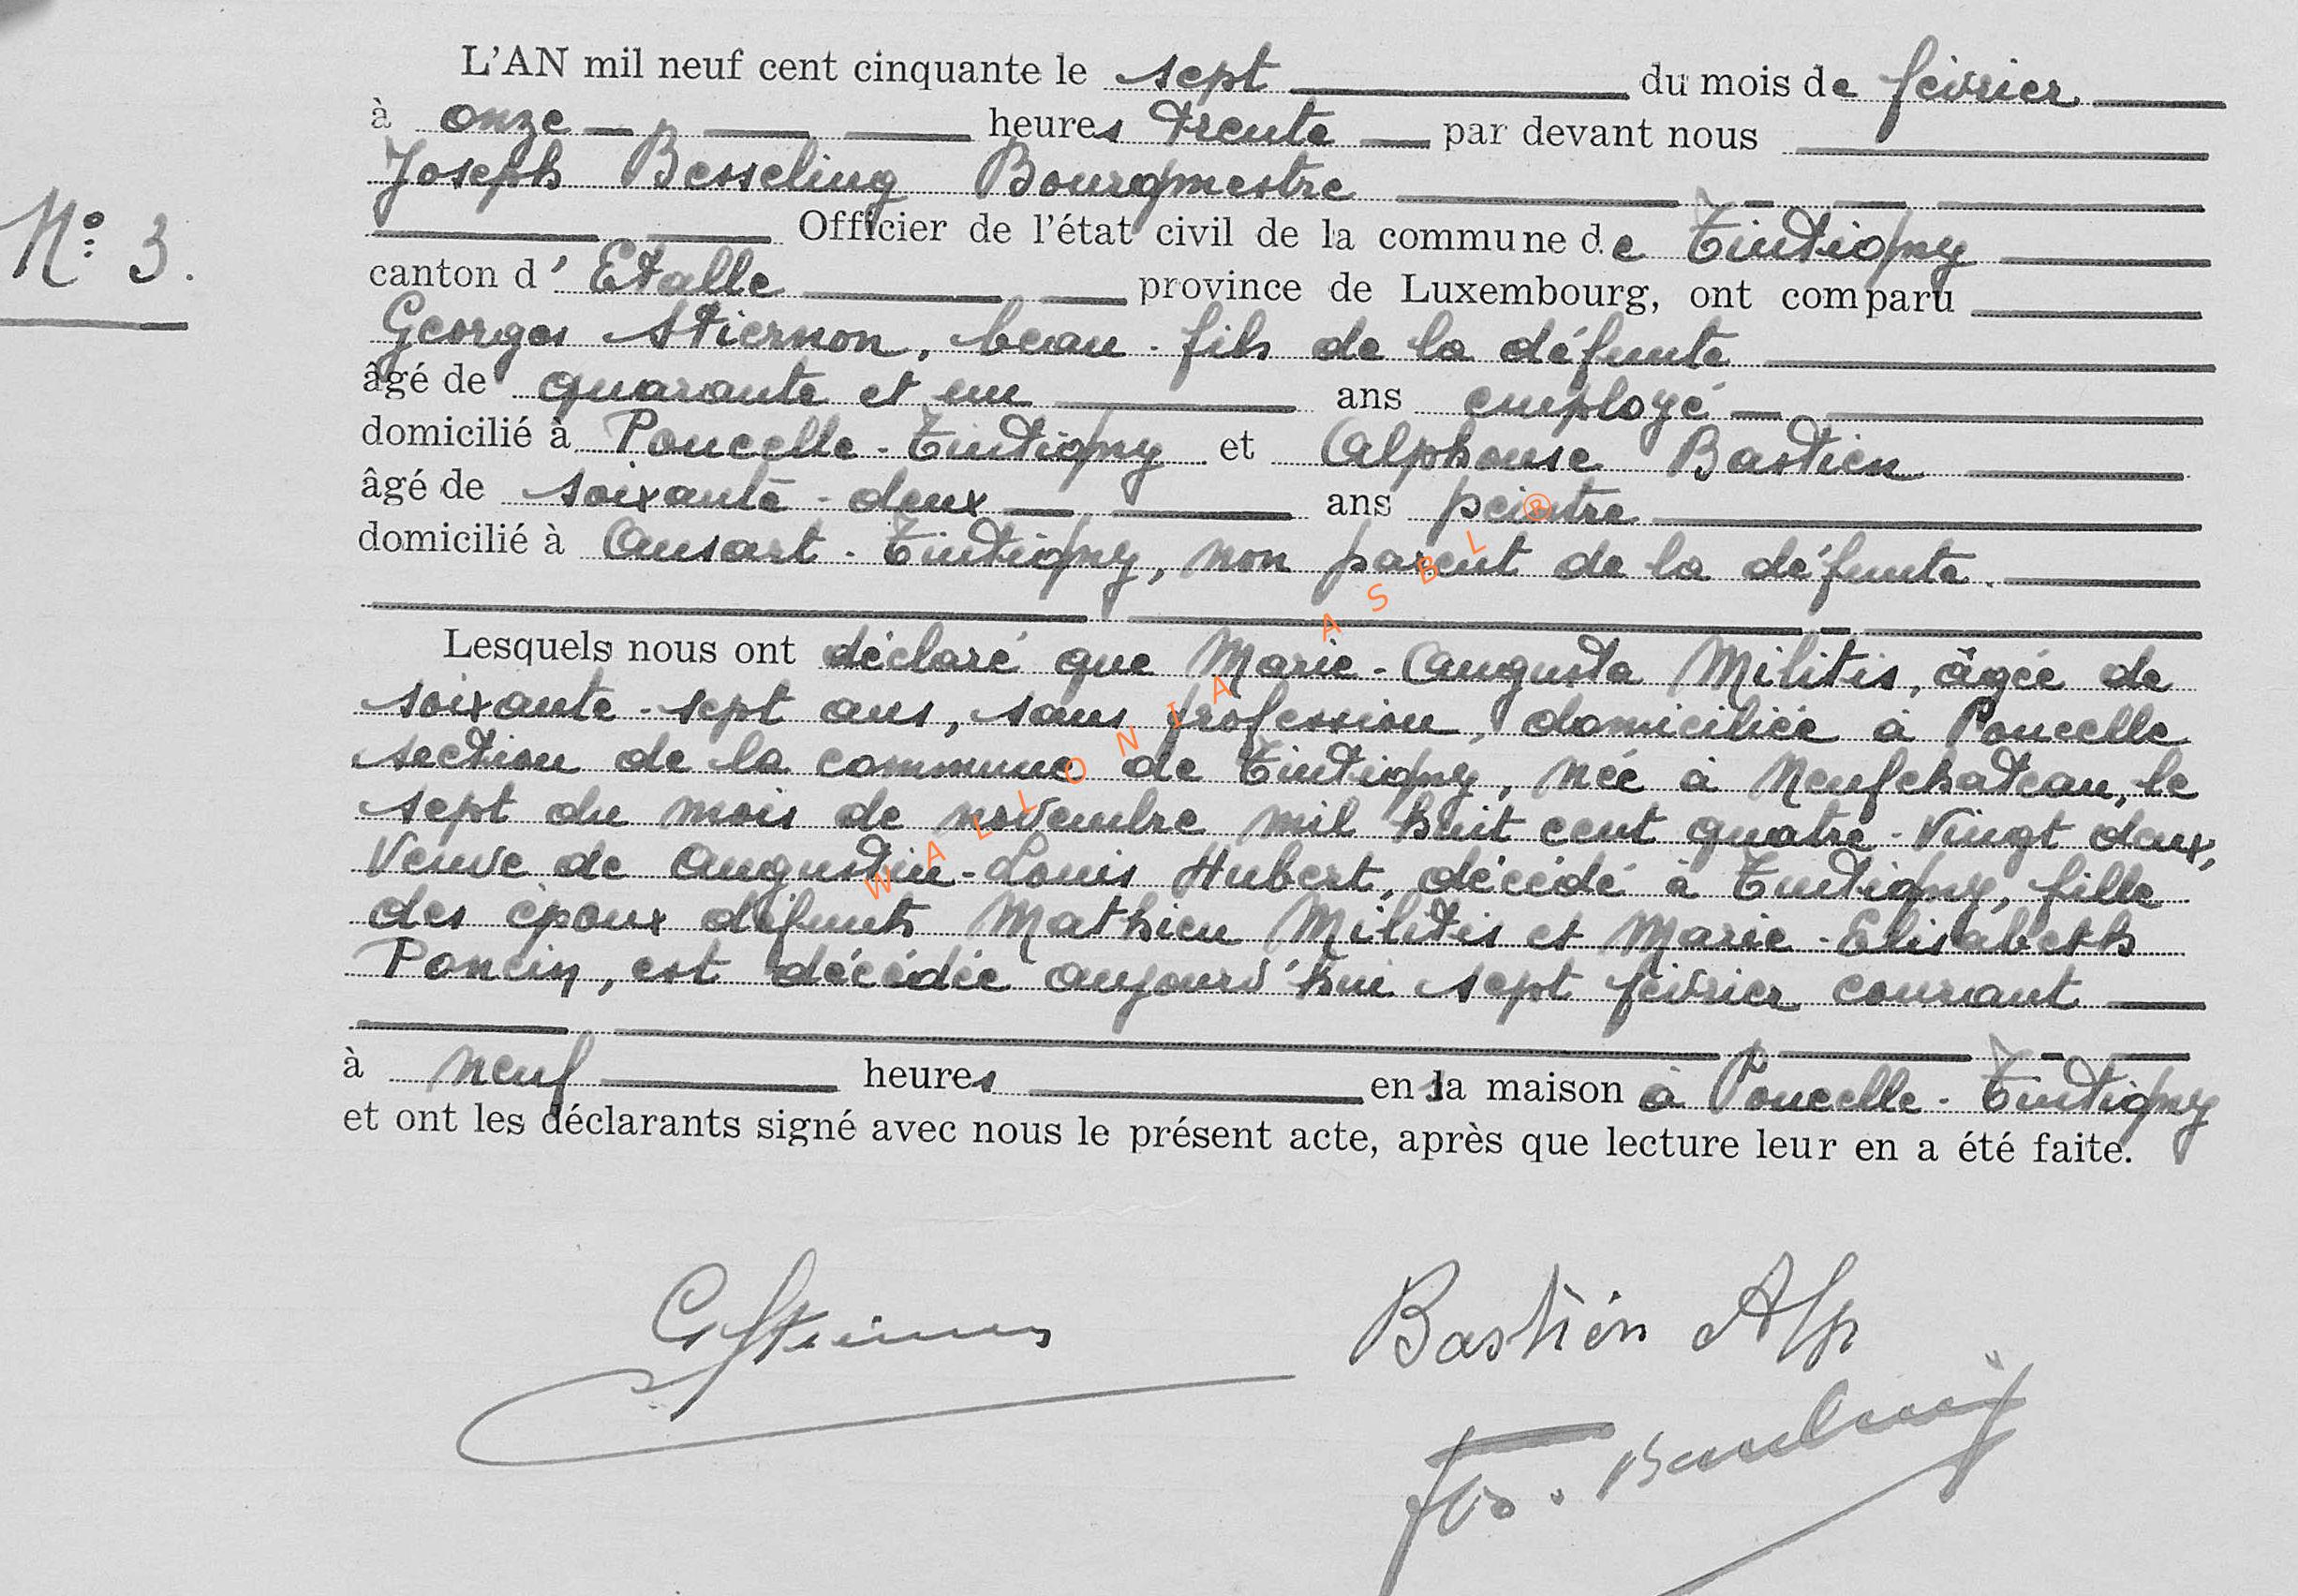 L'AN mil neuf cent cinquante le sept du mois de février
à onze heures trente par devant nous
Joseph Besseling Bourgmestre
N° 3.
Officier de l'état civil de la commune de Tintigny
canton d' Etalle province de Luxembourg, ont comparu
Georges Stiernon, beau-fils de la défunte
âgé de quarante et un ans employé
domicilié à Poncelle-Tintigny et Alphonse Bastien
âgé de soixante-deux ans peintre
domicilié à Ansart-Tintigny, non parent de la défunte.
Lesquels nous ont déclaré que Marie-Augusta Militis, âgée de
soixante-sept ans, sans profession, domiciliée à Poncelle
section de la commune de Tintigny, née à Neufchateau, le
sept du mois de novembre mil huit cent quatre-vingt deux,
Veuve de Augustin-Louis Hubert, décédé à Tintigny, fille
des époux défunts Mathieu Militis et Marie-Elisabeth
Poncin, est décédée aujourd'hui sept février courant
à neuf heures en la maison à Poncelle-Tintigny
et ont les déclarants signé avec nous le présent acte, après que lecture leur en a été faite.
WALLONIA ASBL ®
G Stiernon
Bastien Alp